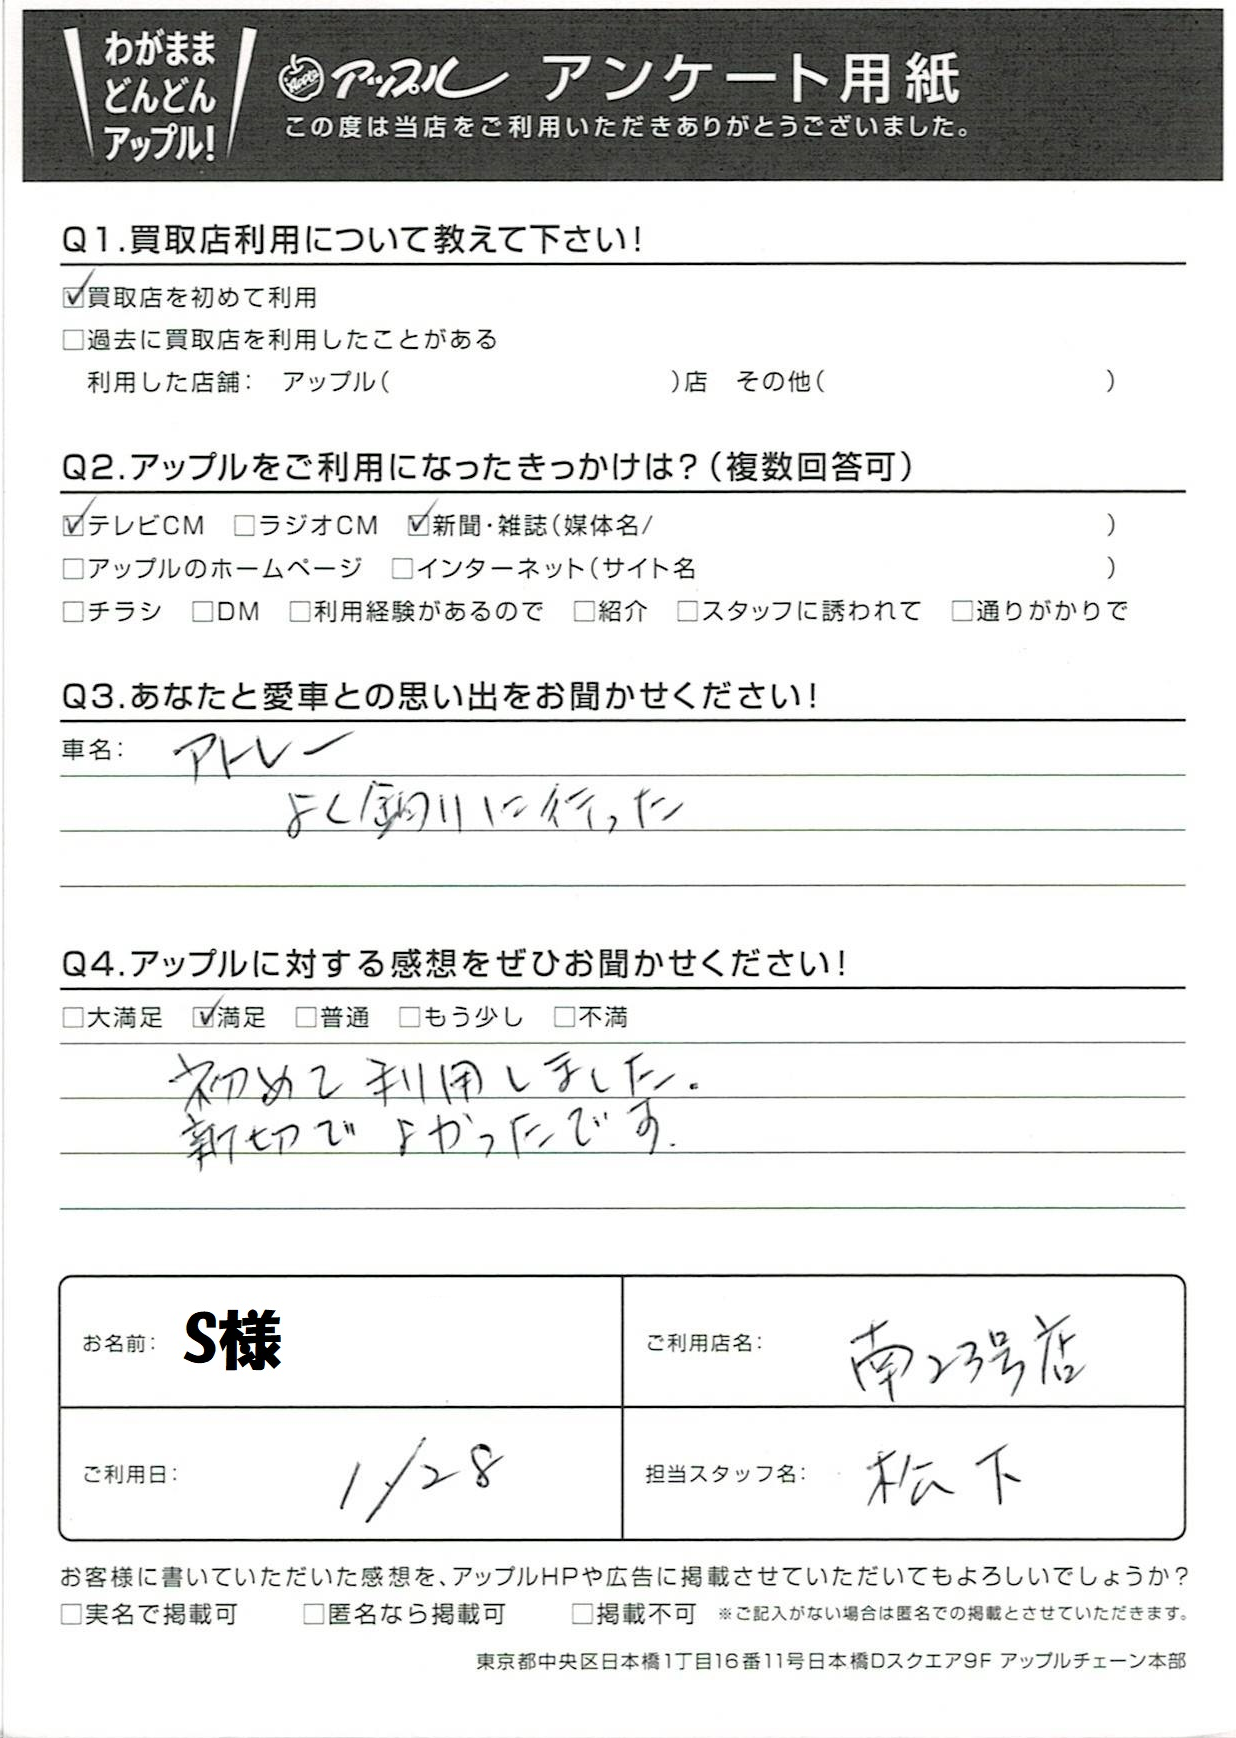 わがまま
どんどん
アップル!
Apple アップル アンケート用紙
この度は当店をご利用いただきありがとうございました。
Q1.買取店利用について教えて下さい!
☑買取店を初めて利用
□過去に買取店を利用したことがある
利用した店舗: アップル( )店 その他( )
Q2.アップルをご利用になったきっかけは?(複数回答可)
☑テレビCM □ラジオCM ☑新聞・雑誌(媒体名/ )
□アップルのホームページ □インターネット(サイト名 )
□チラシ □DM □利用経験があるので □紹介 □スタッフに誘われて □通りがかりで
Q3.あなたと愛車との思い出をお聞かせください!
車名: アトレー
よく釣りに行った
Q4.アップルに対する感想をぜひお聞かせください!
□大満足 ☑満足 □普通 □もう少し □不満
初めて利用しました.
親切でよかったです.
お名前: S様
ご利用店名: 南23号店
ご利用日: 1/28
担当スタッフ名: 松下
お客様に書いていただいた感想を、アップルHPや広告に掲載させていただいてもよろしいでしょうか?
□実名で掲載可 □匿名なら掲載可 □掲載不可 ※ご記入がない場合は匿名での掲載とさせていただきます。
東京都中央区日本橋1丁目16番11号日本橋Dスクエア9F アップルチェーン本部